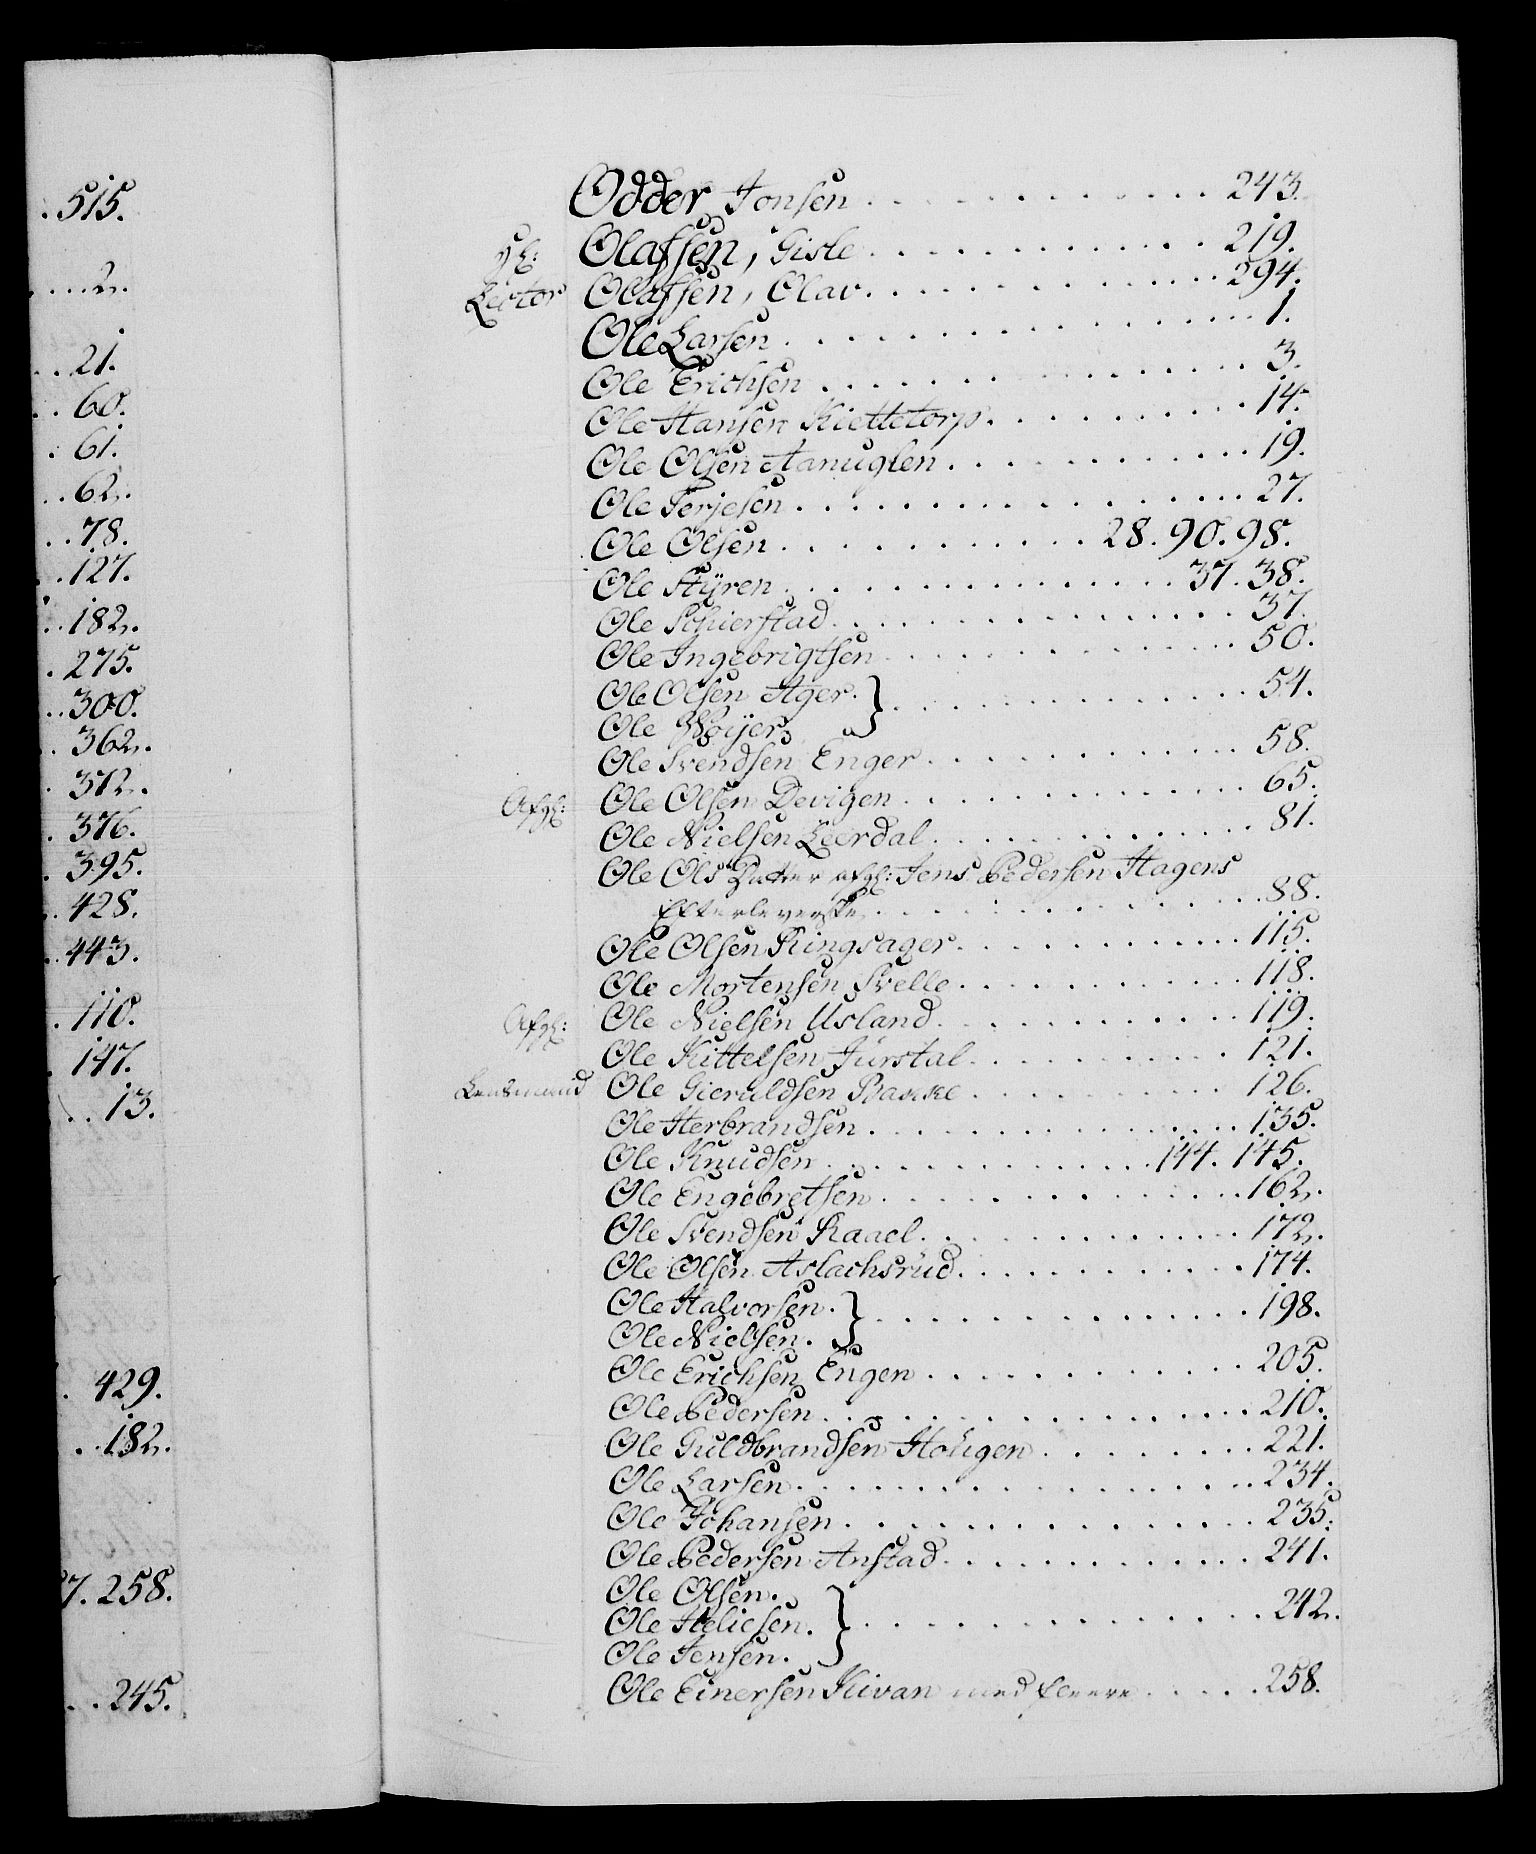 515.
2.
21.
60.
61.
62.
78.
127.
182.
275.
300.
362.
372.
376.
395.
428.
443.
110.
147.
13.
429.
182.
7. 258.
245.
Odder Jonsen . . . 243.
Olafsen, Gisle . . . 219.
Lector Olafsen, Olav . . . 294.
Ole Larsen . . . 1.
Ole Erichsen . . . 3.
Ole Hansen Kiettetorp . . . 14.
Ole Olsen Aanuglen . . . 19.
Ole Terjesen . . . 27.
Ole Olsen . . . 28. 90. 98.
Ole Styren . . . 37. 38.
Ole Schierstad . . . 37.
Ole Ingebrigtsen . . . 50.
Ole Olsen Ager. } . . . 54.
Ole Woyer
Ole Svendsen Enger . . . 58.
Afgl: Ole Olsen Devigen . . . 65.
Ole Nielsen Leerdal . . . 81.
Ole Ols Datter afgl: Jens Pedersen Hagens
Efterleverske . . . 88.
Ole Olsen Ringsager . . . 115.
Ole Mortensen Svelle . . . 118.
Afgl: Ole Nielsen Usland . . . 119.
Ole Kittelsen Jurstal . . . 121.
Lensmand Ole Gieruldsen Bakke . . . 126.
Ole Herbrandsen . . . 135.
Ole Knudsen . . . 144. 145.
Ole Engebretsen . . . 162.
Ole Svendsen Raael . . . 172.
Ole Olsen Aslachsrud . . . 174.
Ole Halvorsen. } . . . 198.
Ole Nielsen.
Ole Erichsen Engen . . . 205.
Ole Pedersen . . . 210.
Ole Guldbrandsen Hougen . . . 221.
Ole Larsen . . . 234.
Ole Johansen . . . 235.
Ole Pedersen Anstad . . . 241.
Ole Olsen.
Ole Heliesen. } . . . 242.
Ole Jensen.
Ole Einersen Kivan med fleere . . . 258.